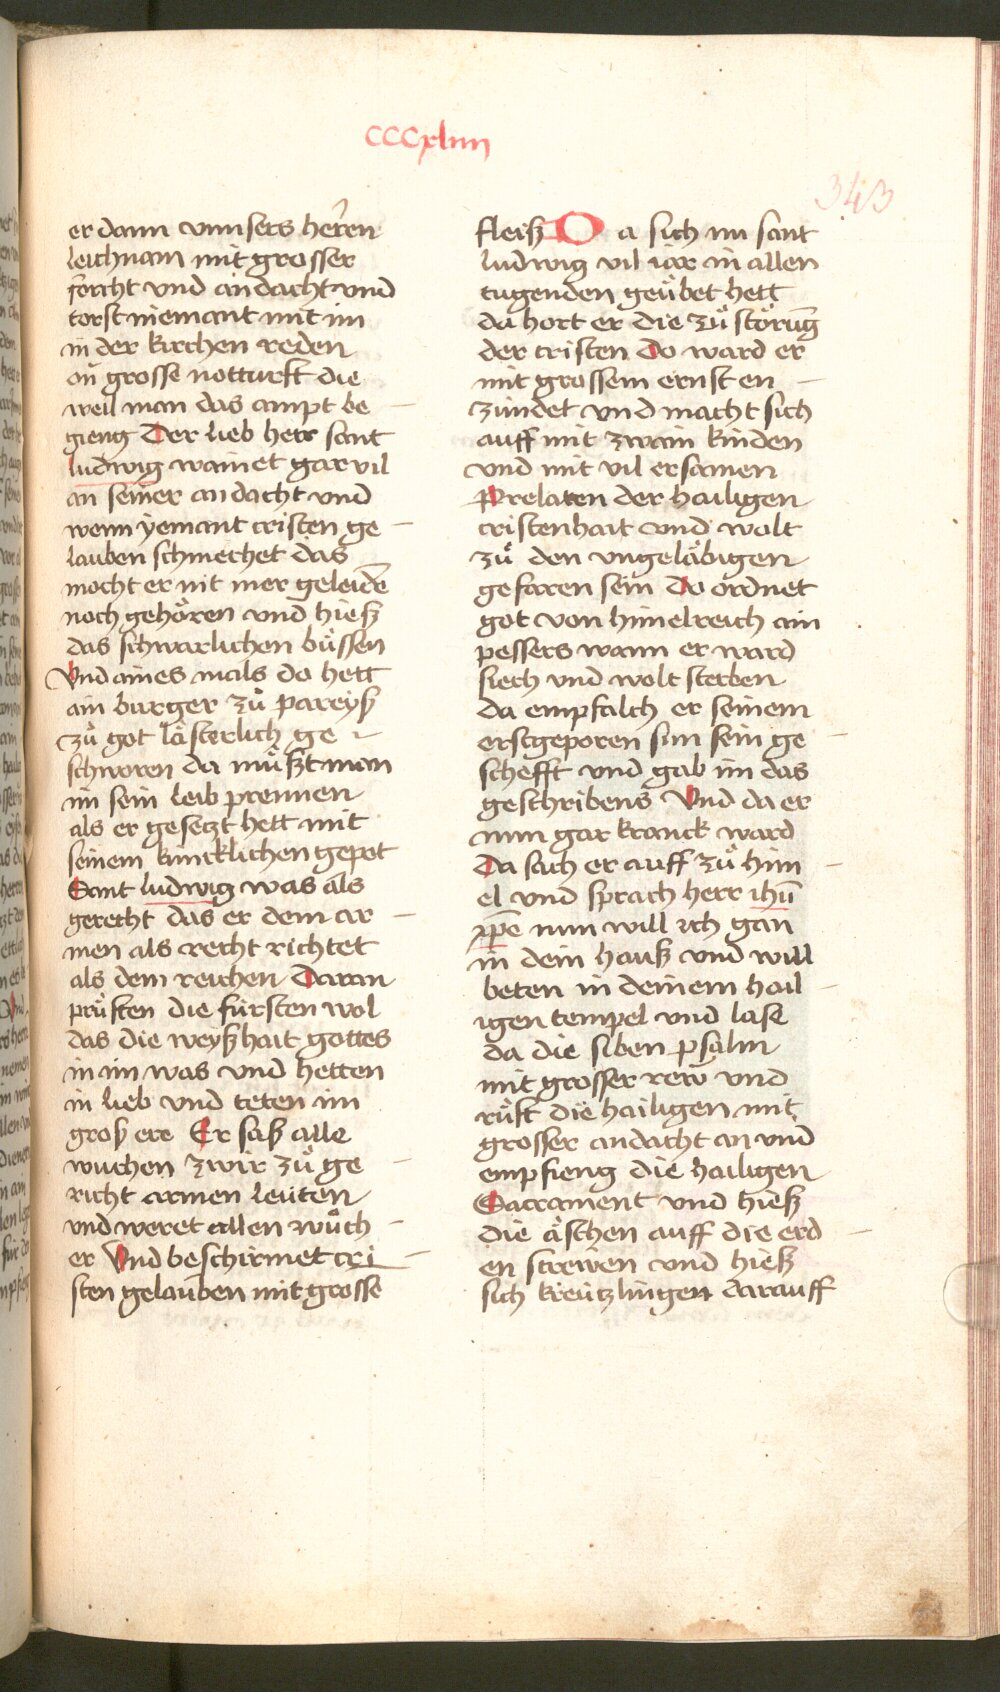 CCCxliiii
343
er dann vnnsers herren
leichnam mit grosser
forcht vnd andacht vnd
torst niemant mit im
in der kirchen reden
on grosse notturft die
weil man das ampt be
gieng Der lieb herr sant
ludwig wainet gar vil
an seiner andacht vnd
wenn yemant cristen ge
lauben schmechet das
mocht er nit mer geleiden̄
noch gehören vnd hieß
das schwarlichen büssen
Vnd aines mals do hett
ain burger zů pareyß
zů got lästerlich ge
schworen da můßt man
im sein leib prennen
als er gesetzt hett mit
seinem kincklichen gepot
Sant ludwig was als
gerecht das er dem ar
men als recht richtet
als dem reichen Daran
průften die fürsten wol
das die weyßhait gottes
in im was vnd hetten
in lieb vnd teten im
groß ere Er saß alle
wuchen zwir zů ge
richt armen leüten
vnd weret allen wůch
er Vnd beschirmet cri
sten gelauben mit grosse
fleiß Da sich nu sant
ludwig vil iar in allen
tugenden geübet hett
da hort er die zů störūg
der cristen Do ward er
mit grossem ernst en
zündet vnd macht sich
auff mit zwain kinden
vnd mit vil ersamen
Prelaten der hailigen
cristenhait vnd wolt
zů den vngeläbigen
gefaren sein Do ordnet
got von himelreich ain
pessers wann er ward
siech vnd wolt sterben
da empfalch er seinem
erstgeporen sun sein ge
schefft vnd gab im das
geschribens Vnd da er
nun gar kranck ward
Da sach er auff zů him
el vnd sprach herr ihū
xp̄e nun will ich gan
in dein hauß vnd will
beten in deinem hail
igen tempel vnd lase
da die siben psalm
mit grosser rew vnd
rüft die hailigen mit
grosser andacht an vnd
empfieng die hailigen
Sacrament vnd hieß
die äschen auff die erd
en strewen vnd hieß
sich kreützlingen darauff